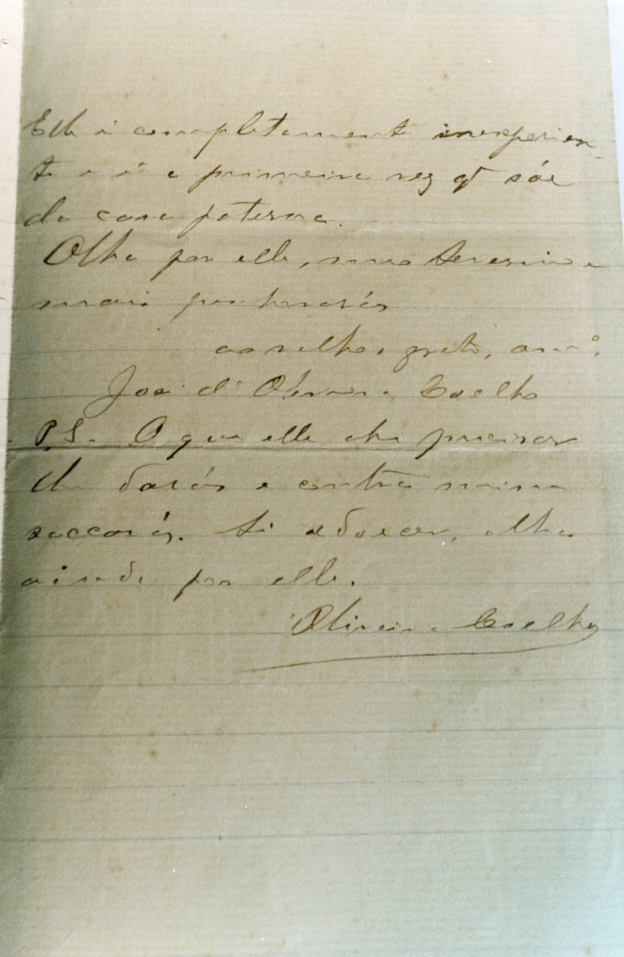 Elle é completamente inexperien-
te e é a primeira vez q sáe
da casa paterna.
Olha por elle, meu
mais penhorarás
ao velho e grato, amº.
José d'Oliveira Coelho
P.S. O que elle ahi precisar
lhe darás e contra mim
saccarás. Si adoecer, olha
ainda por elle.
Oliveira Coelho